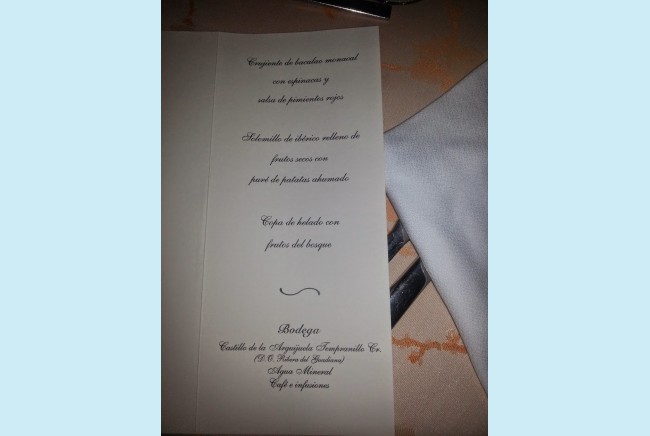 Crujiente de bacalao monacal
con espinacas y
salsa de pimientos rojos
Solomillo de ibérico relleno de
frutos secos con
puré de patatas ahumado
Copa de helado con
frutos del bosque
Bodega
Castillo de la Arguijuela Tempranillo Cr.
(D.O. Ribera del Guadiana)
Agua Mineral
Café e infusiones